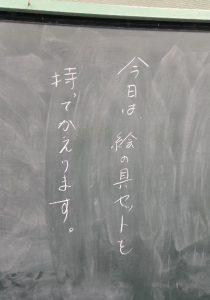 今日は、絵の具セットを
持ってかえります。